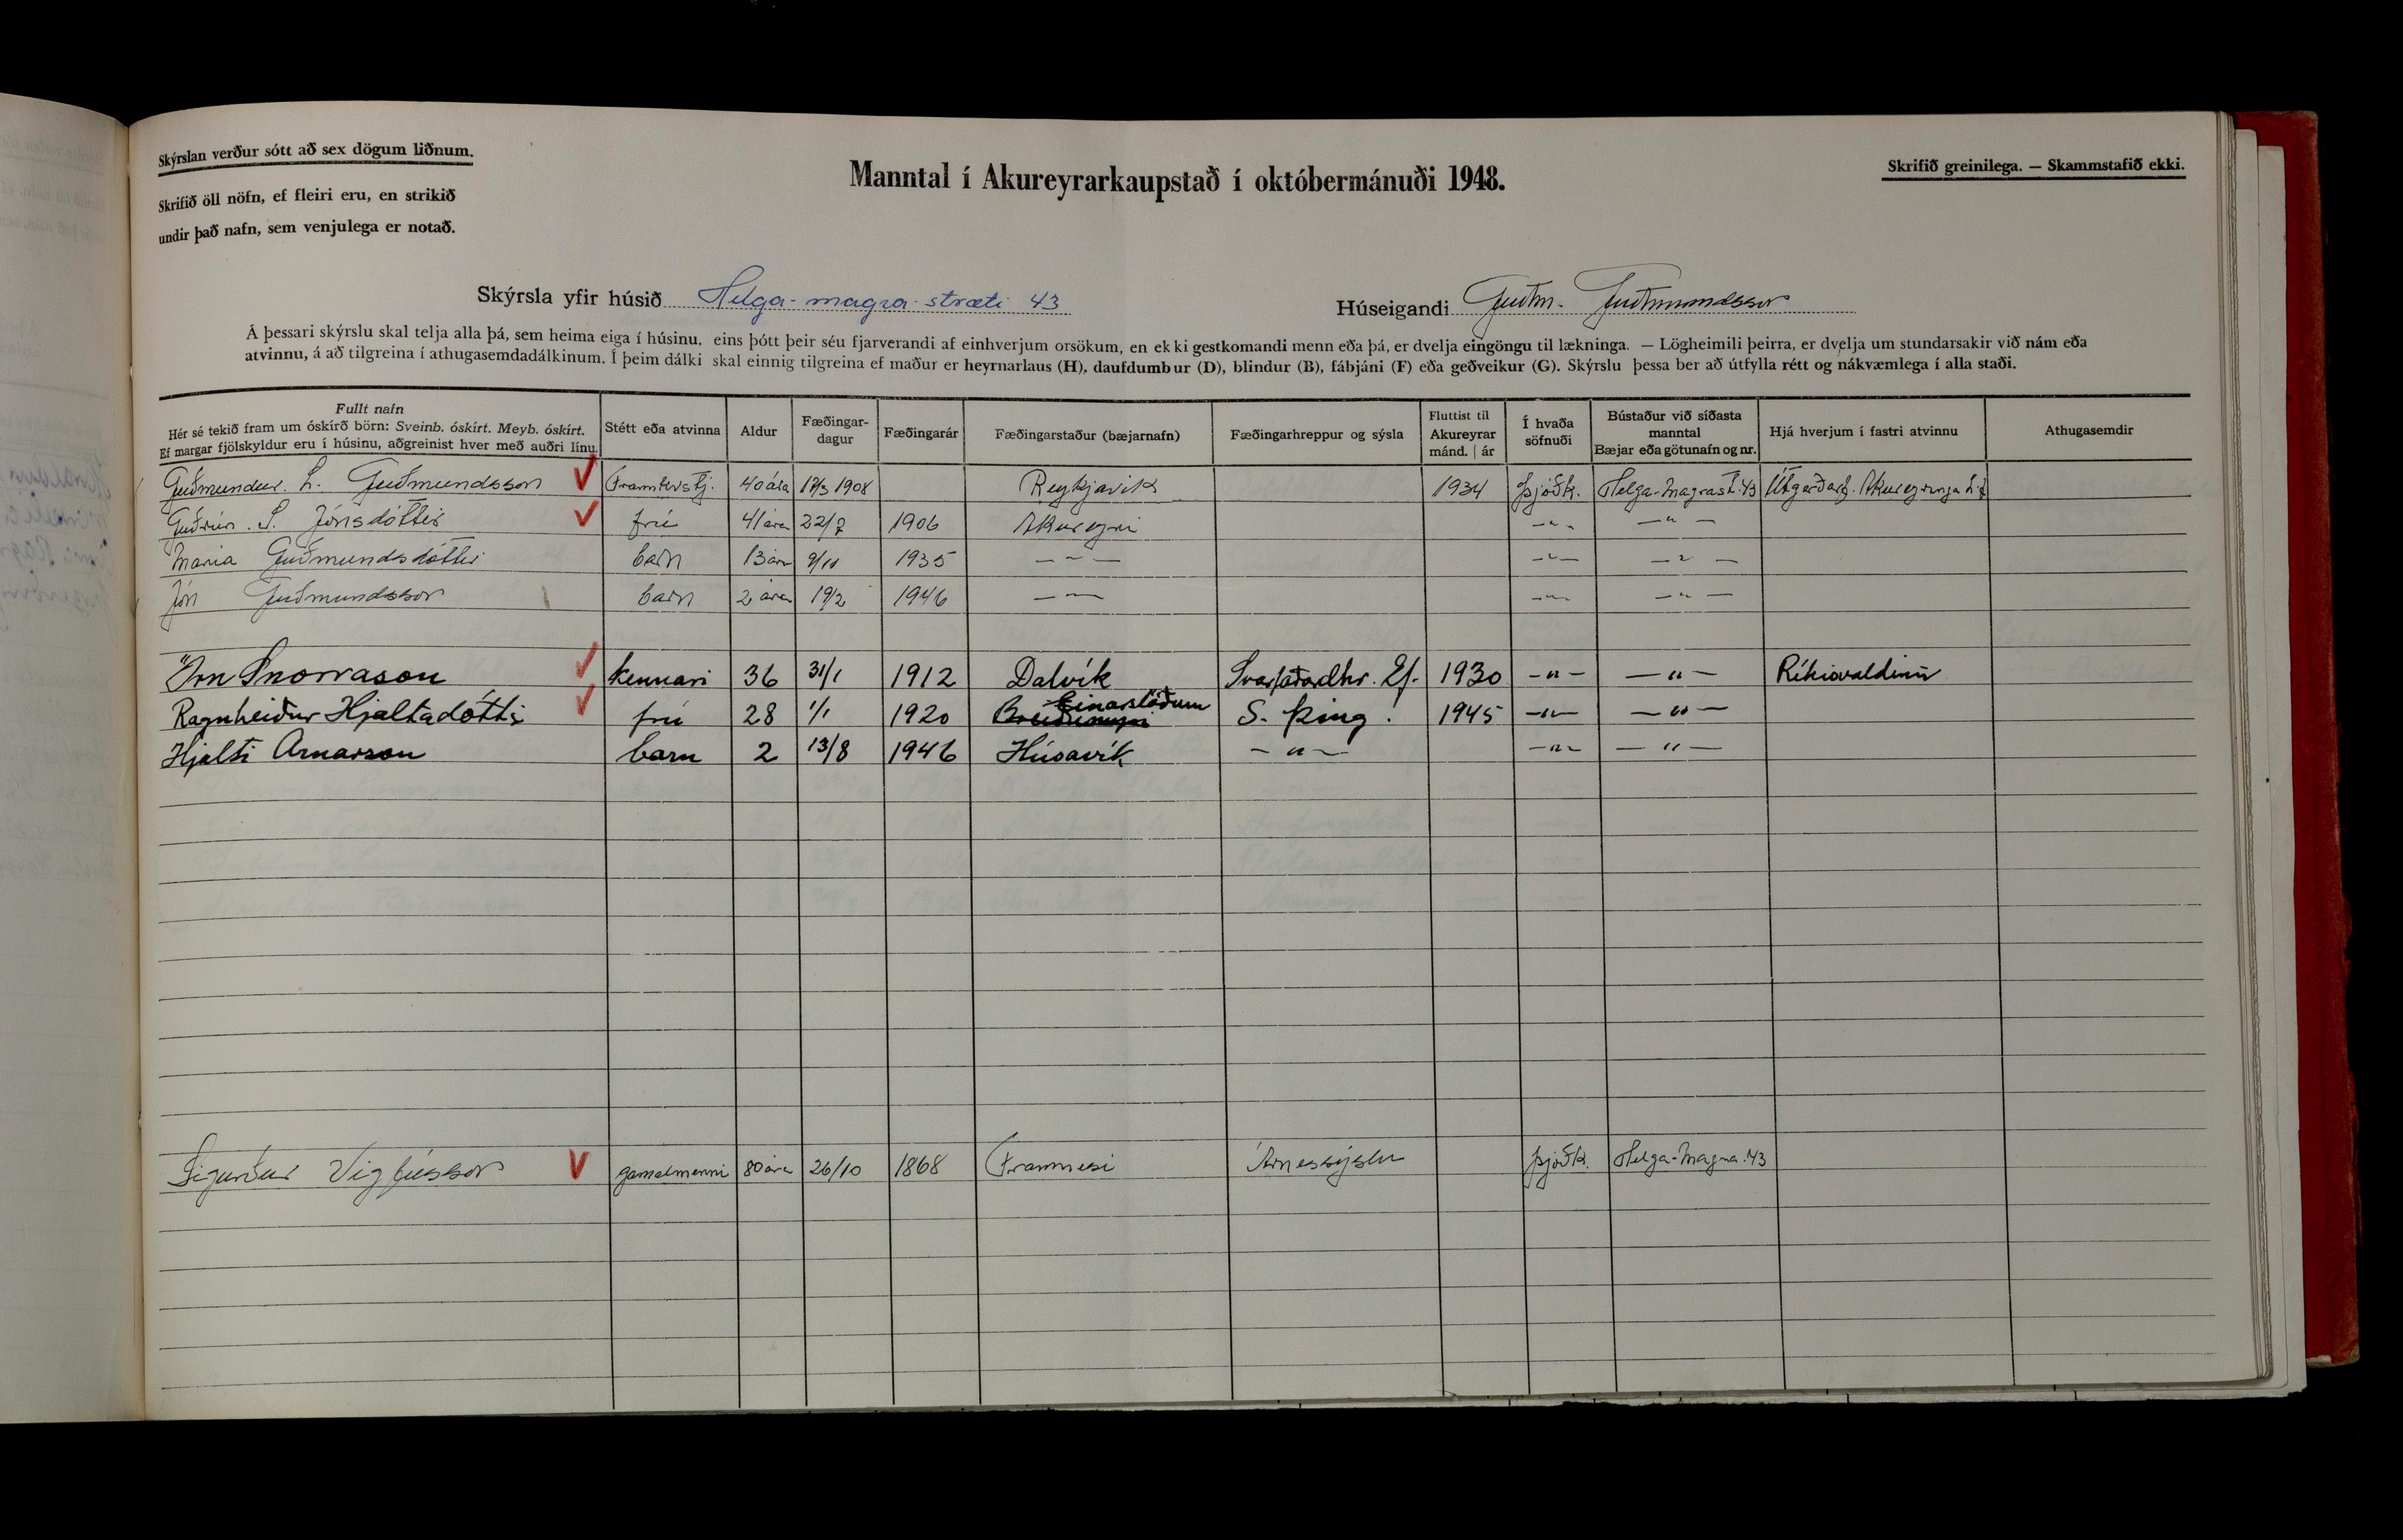 Skýrslan verður sótt að sex dögum liðnum.
Skrifið öll nöfn, ef fleiri eru, en strikið
undir það nafn, sem venjulega er notað.
Manntal í Akureyrarkaupstað í októbermánuði 1948.
Skrifið greinilega. — Skammstafið ekki.
Skýrsla yfir húsið Helga-magra-stræti 43
Húseigandi Guðm. Guðmundsson
Á þessari skýrslu skal telja alla þá, sem heima eiga í húsinu, eins þótt þeir séu fjarverandi af einhverjum orsökum, en ekki gestkomandi menn eða þá, er dvelja eingöngu til lækninga. — Lögheimili þeirra, er dvelja um stundarsakir við nám eða
atvinnu, á að tilgreina í athugasemdadálkinum. Í þeim dálki skal einnig tilgreina ef maður er heyrnarlaus (H), daufdumbur (D), blindur (B), fábjáni (F) eða geðveikur (G). Skýrslu þessa ber að útfylla rétt og nákvæmlega í alla staði.
Fullt nafn
Hér sé tekið fram um óskírð börn: Sveinb. óskírt. Meyb. óskírt.
Ef margar fjölskyldur eru í húsinu, aðgreinist hver með auðri línu.
Stétt eða atvinna
Aldur
Fæðingar-
dagur
Fæðingarár
Fæðingarstaður (bæjarnafn)
Fæðingarhreppur og sýsla
Fluttist til
Akureyrar
mánd. | ár
Í hvaða
söfnuði
Bústaður við síðasta
manntal
Bæjar eða götunafn og nr.
Hjá hverjum í fastri atvinnu
Athugasemdir
Guðmundur. L. Guðmundsson Framkvstj. 40 ára 1908 Reykjavik 1934 Þjóðk. Helga-Magrast. 43 Útgerðarf. Akureyringa h.f
Guðrún. S. Jónsdóttir frú 41 ára 22/7 1906 Akureyri —"— —"—
Maria Guðmundsdóttir barn 13 ára 9/10 1935 —"— —"— —"—
Jón Guðmundsson barn 2 ára 19/2 1946 —"— —"— —"—
Örn Snorrason kennari 36 31/1 1912 Dalvík Svarfaðardhr. Ef. 1930 —"— —"— Ríkisvaldinu
Einarsstöðum
Ragnheiður Hjaltadóttir frú 28 1/1 1920 S. Þing. 1945 —"— —"—
Hjalti Arnarson barn 2 13/8 1946 Húsavík —"— —"— —"—
Sigurður Vigfússon gamalmenni 80 ára 26/10 1868 Framnesi Árnessýslu Þjóðk. Helga-Magra. 43